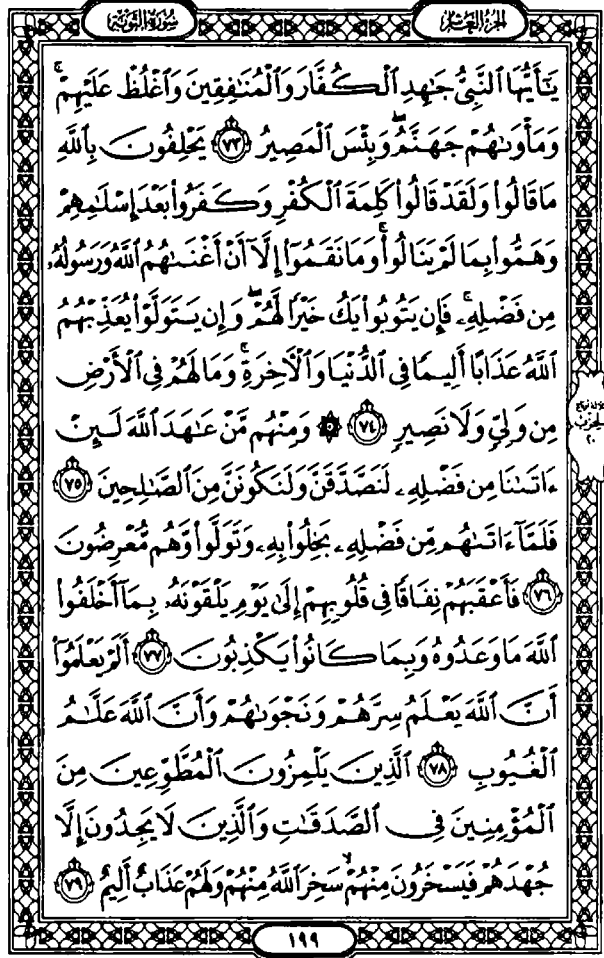 الجزء العاشر
سورة التوبة
يَـٰٓأَيُّهَا ٱلنَّبِىُّ جَـٰهِدِ ٱلْكُفَّارَ وَٱلْمُنَـٰفِقِينَ وَٱغْلُظْ عَلَيْهِمْ ۚ
وَمَأْوَىٰهُمْ جَهَنَّمُ ۖ وَبِئْسَ ٱلْمَصِيرُ ٧٣ يَحْلِفُونَ بِٱللَّهِ
مَا قَالُوا۟ وَلَقَدْ قَالُوا۟ كَلِمَةَ ٱلْكُفْرِ وَكَفَرُوا۟ بَعْدَ إِسْلَـٰمِهِمْ
وَهَمُّوا۟ بِمَا لَمْ يَنَالُوا۟ ۚ وَمَا نَقَمُوٓا۟ إِلَّآ أَنْ أَغْنَىٰهُمُ ٱللَّهُ وَرَسُولُهُۥ
مِن فَضْلِهِۦ ۚ فَإِن يَتُوبُوا۟ يَكُ خَيْرًا لَّهُمْ ۖ وَإِن يَتَوَلَّوْا۟ يُعَذِّبْهُمُ
ٱللَّهُ عَذَابًا أَلِيمًا فِى ٱلدُّنْيَا وَٱلْـَٔاخِرَةِ ۚ وَمَا لَهُمْ فِى ٱلْأَرْضِ
مِن وَلِىٍّ وَلَا نَصِيرٍ ٧٤ ۞ وَمِنْهُم مَّنْ عَـٰهَدَ ٱللَّهَ لَئِنْ
ءَاتَىٰنَا مِن فَضْلِهِۦ لَنَصَّدَّقَنَّ وَلَنَكُونَنَّ مِنَ ٱلصَّـٰلِحِينَ ٧٥
فَلَمَّآ ءَاتَىٰهُم مِّن فَضْلِهِۦ بَخِلُوا۟ بِهِۦ وَتَوَلَّوا۟ وَّهُم مُّعْرِضُونَ
٧٦ فَأَعْقَبَهُمْ نِفَاقًا فِى قُلُوبِهِمْ إِلَىٰ يَوْمِ يَلْقَوْنَهُۥ بِمَآ أَخْلَفُوا۟
ٱللَّهَ مَا وَعَدُوهُ وَبِمَا كَانُوا۟ يَكْذِبُونَ ٧٧ أَلَمْ يَعْلَمُوٓا۟
أَنَّ ٱللَّهَ يَعْلَمُ سِرَّهُمْ وَنَجْوَىٰهُمْ وَأَنَّ ٱللَّهَ عَلَّـٰمُ
ٱلْغُيُوبِ ٧٨ ٱلَّذِينَ يَلْمِزُونَ ٱلْمُطَّوِّعِينَ مِنَ
ٱلْمُؤْمِنِينَ فِى ٱلصَّدَقَـٰتِ وَٱلَّذِينَ لَا يَجِدُونَ إِلَّا
جُهْدَهُمْ فَيَسْخَرُونَ مِنْهُمْ ۙ سَخِرَ ٱللَّهُ مِنْهُمْ وَلَهُمْ عَذَابٌ أَلِيمٌ ٧٩
ثلاثة أرباع
الحزب
٢٠
١٩٩